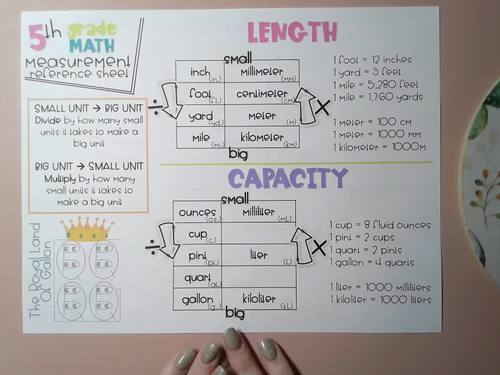 5th grade
MATH
measurement
reference sheet
SMALL UNIT → BIG UNIT
Divide by how many small
units it takes to make a
big unit
BIG UNIT → SMALL UNIT
Multiply by how many
small units it takes to
make a big unit
The Royal Land
Of Gallon
LENGTH
small
inch (in.) millimeter (mm)
foot (ft.) centimeter (cm)
yard (yd.) meter (m)
mile (mi.) kilometer (km)
÷
x
big
1 foot = 12 inches
1 yard = 3 feet
1 mile = 5,280 feet
1 mile = 1,760 yards
1 meter = 100 cm
1 meter = 1000 mm
1 kilometer = 1000m
CAPACITY
small
ounces (oz.) milliliter (mL)
cup (c.)
pint (pt.) liter (L)
quart
gallon kiloliter (kL)
÷
x
big
1 cup = 8 fluid ounces
1 pint = 2 cups
1 quart = 2 pints
1 gallon = 4 quarts
1 liter = 1000 milliliters
1 kiloliter = 1000 liters